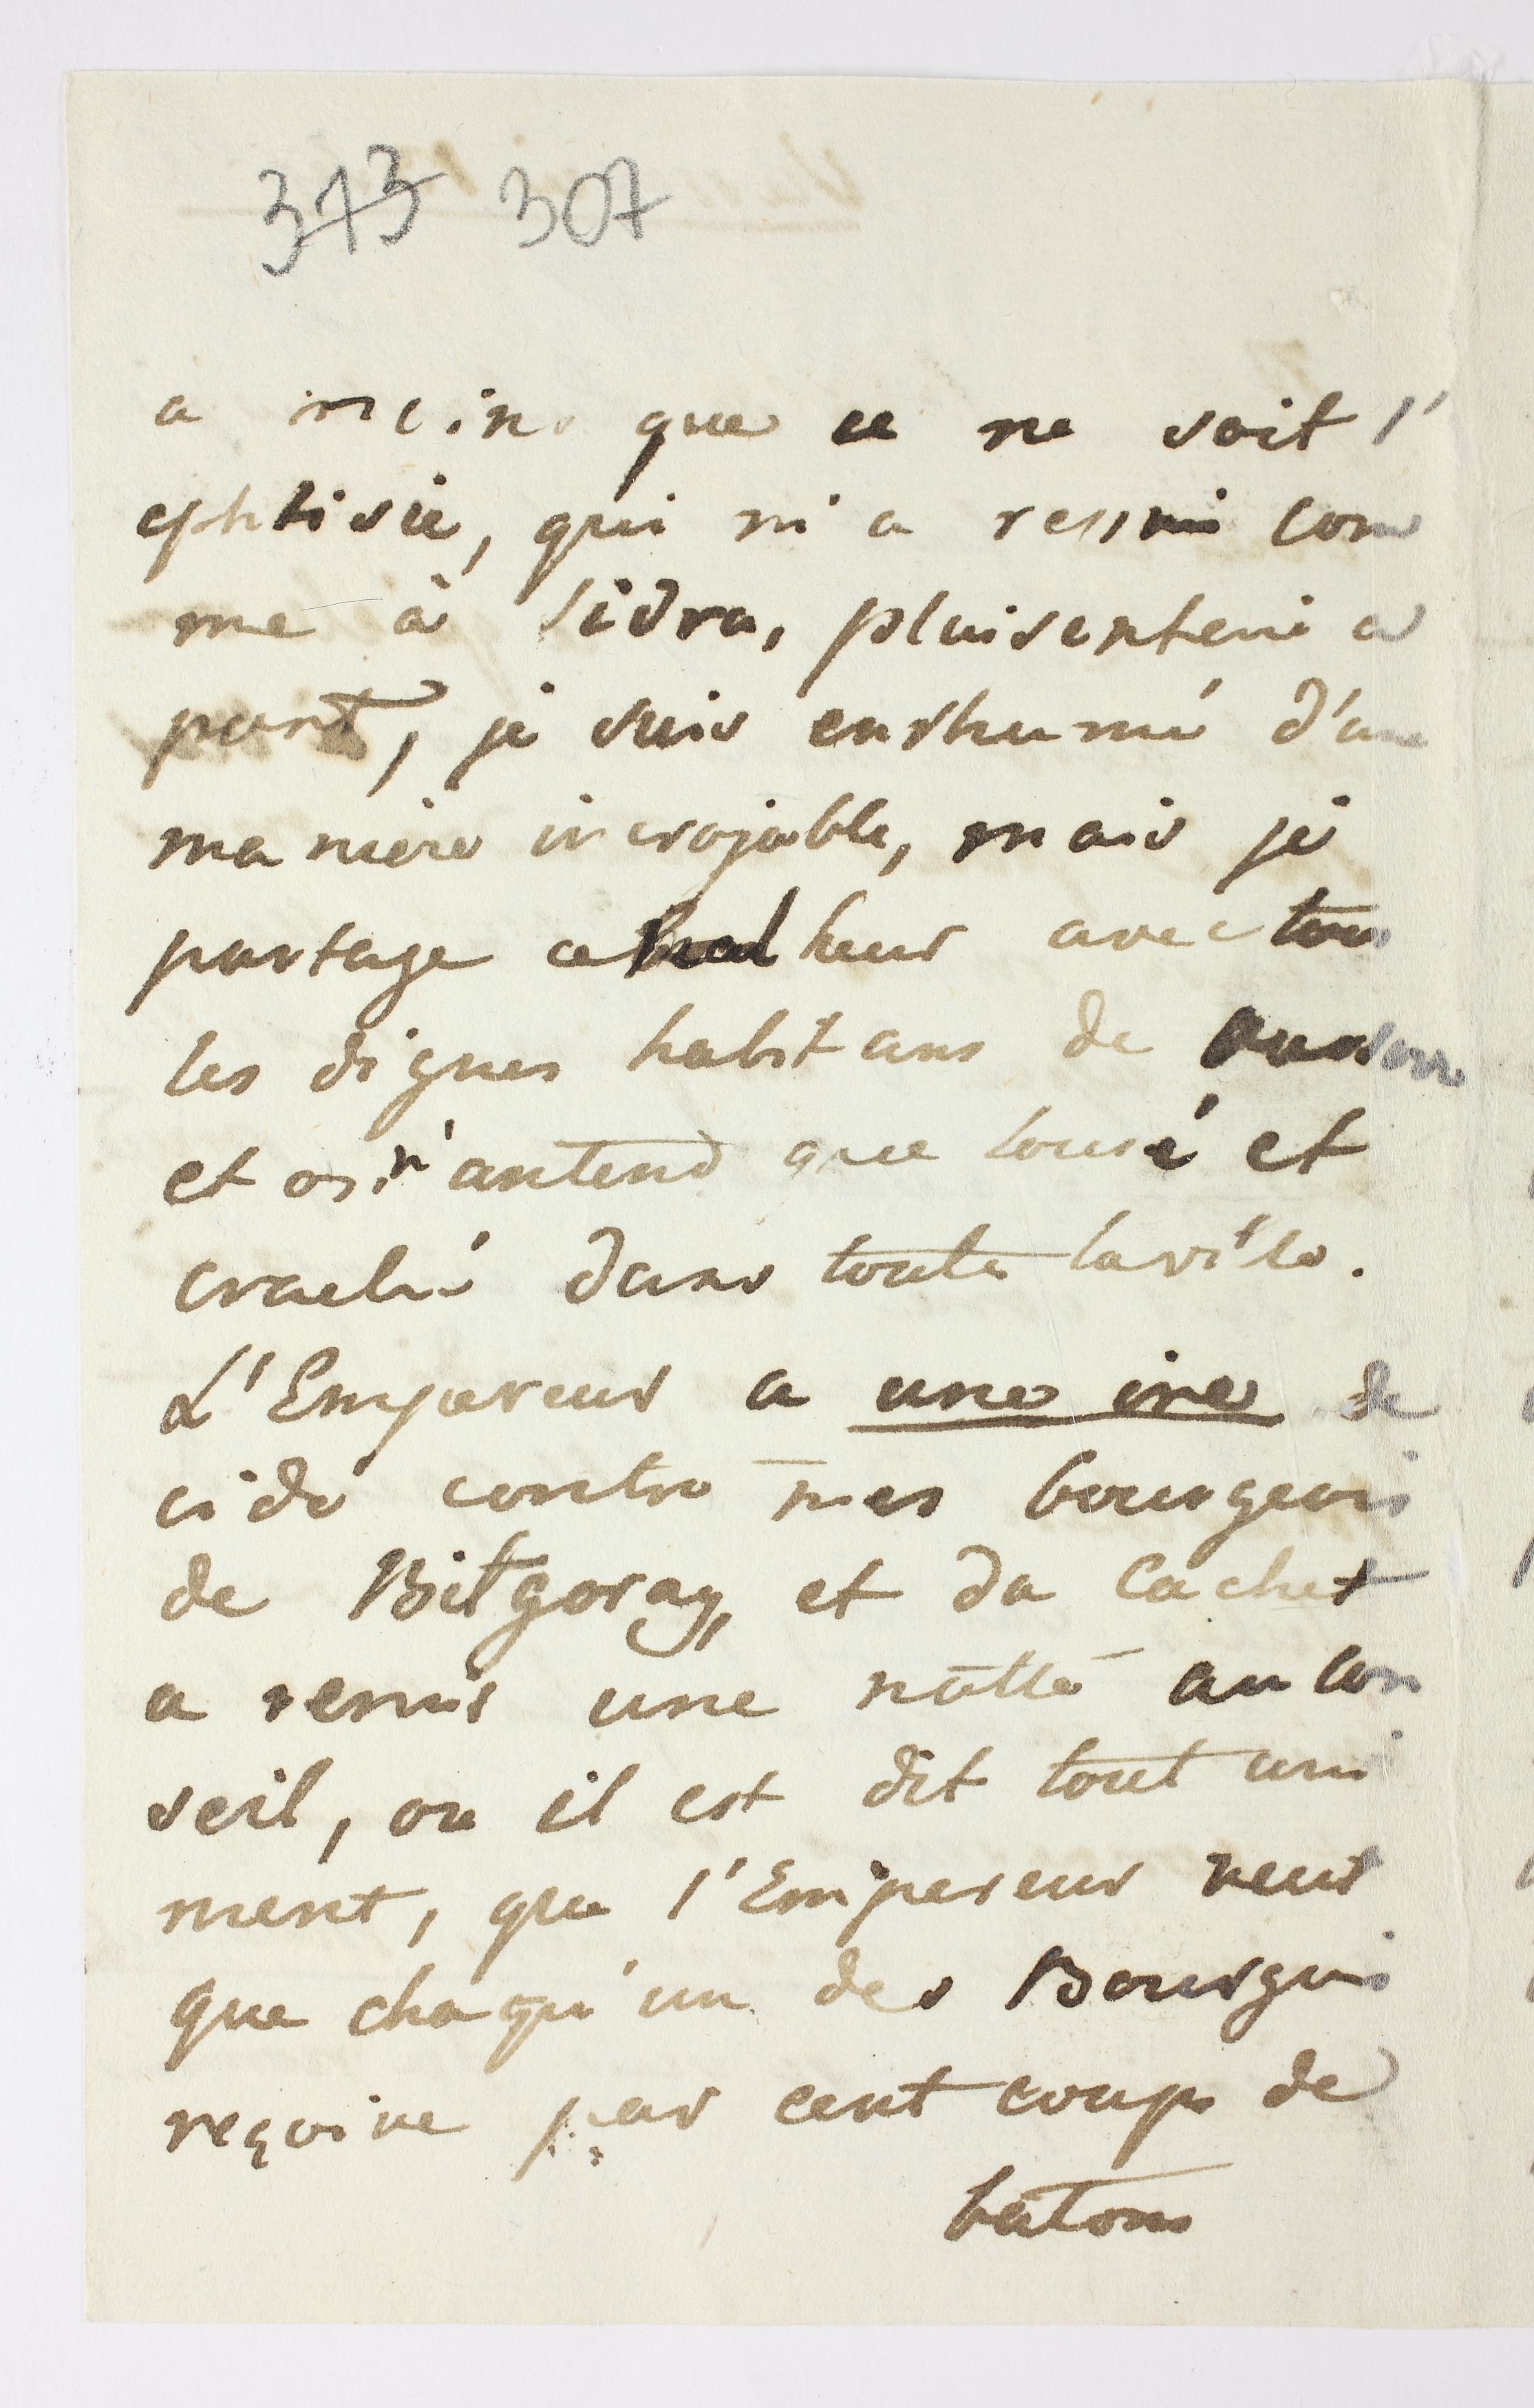 373 307
a moins que ce ne soit l'
ephtisie, qui m'a resmi com
me à Sidra, plaisenterie a
part, je suis enrhumé d'une
maniere incrojable, mais je
partage ce malheur avec tous
les dignes habitans de
et on n'antend que tousé et
craché dans toute la ville.
L'Empereur a une ire de
cidé contre mes bourgeois
de Biłgoray, et da Cachet
a remis une notte au Con
seil, ou il est dit tout uni
ment, que l'Empereur veut
que chaqu'un des Bourgois
reçoive par cent coups de
batons